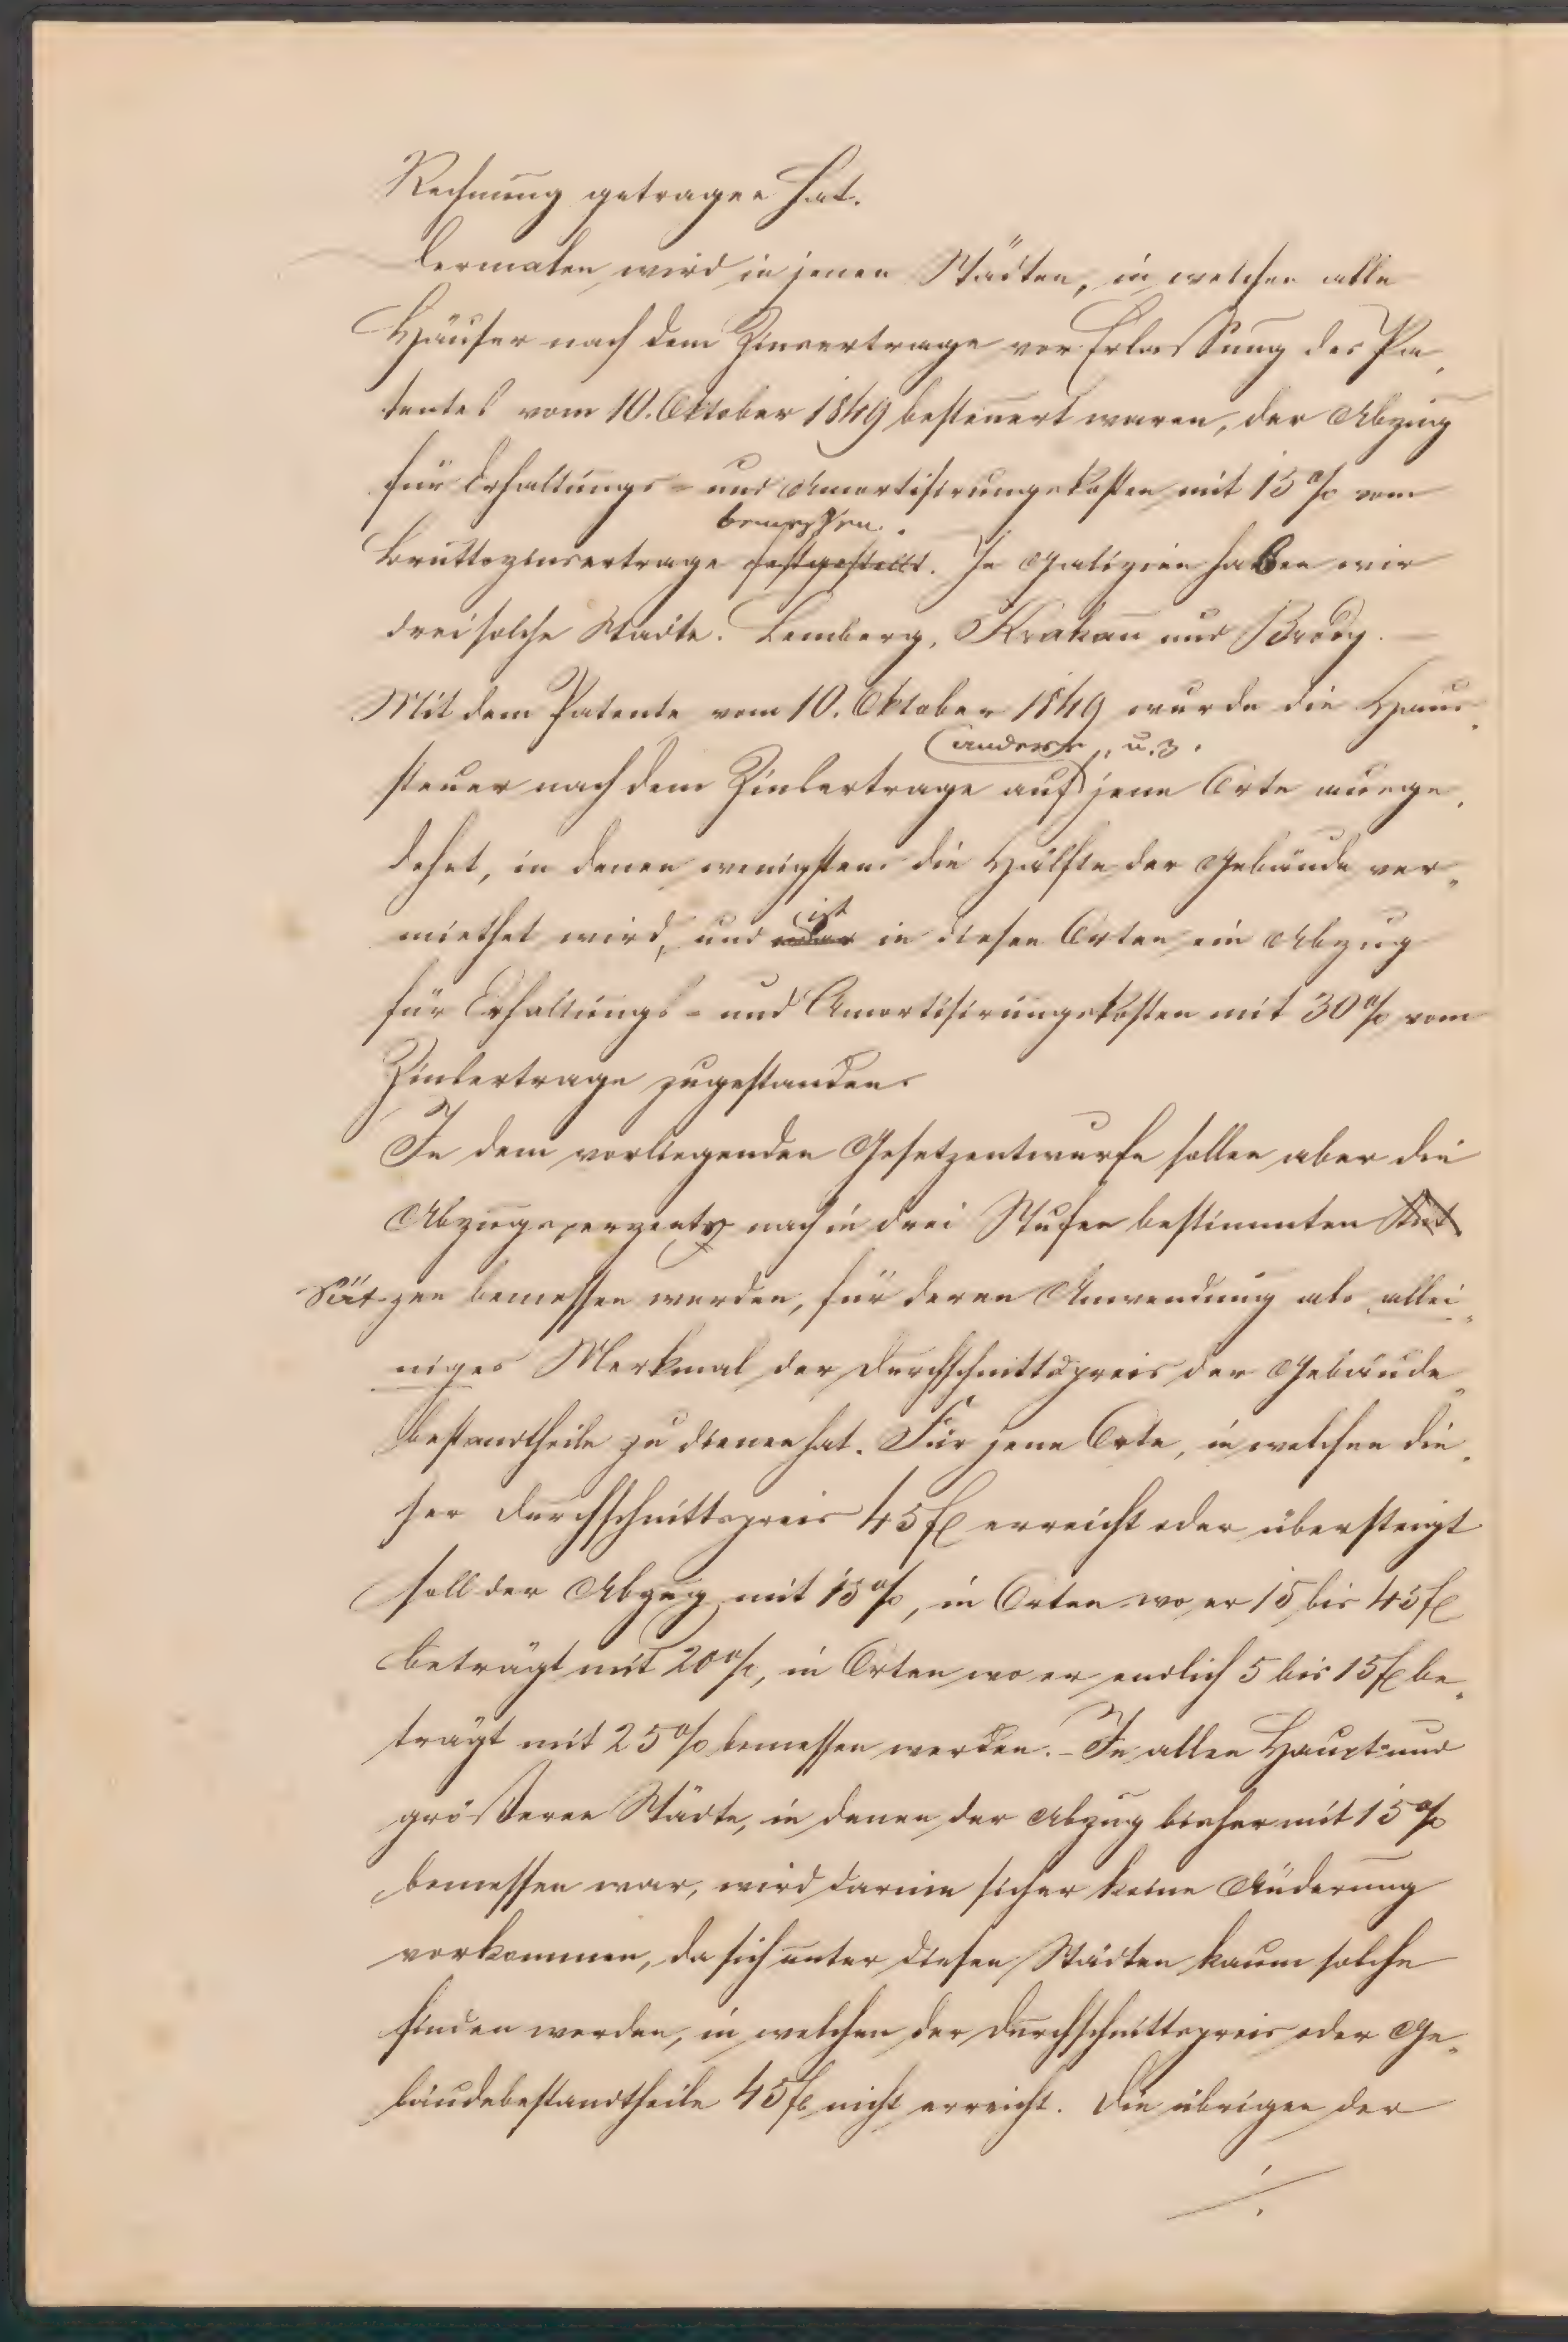 Rechnung getragen hat.
Dermalen wird in jenen Städten, in welchen alle
Häuser nach dem Zinsertrage vor Erlassung des Pa-
tentes vom 10. Oktober 1849 besteuert waren, der Abzug
für Erhaltungs- und Amortisirungskosten mit 15% vom
bemessen.
Bruttozinsertrage festgestellt. In Galizien haben wir
drei solche Städte. Lemberg, Krakau und Brody. —
Mit dem Patente vom 10. Oktober 1849 wurde die Haus-
andere, u. z.
steuer nach dem Zinsertrage auf jene Orte ausge-
dehnt, in denen wenigstens die Hälfte der Gebäude ver-
ist
miethet wird, und in diesen Orten ein Abzug
für Erhaltungs- und Amortisirungskosten mit 30% vom
Zinsertrage zugestanden.
In dem vorliegenden Gesetzentwurfe sollen aber die
Abzugsperzente nach in drei Stufen bestimmten
Sät-zen bemessen werden, für deren Anwendung als allei-
niges Merkmal der Durchschnittspreis der Gebäude-
bestandtheile zu dienen hat. Für jene Orte, in welchen die-
ser Durchschnittspreis 45 fl erreicht oder übersteigt
soll der Abzug mit 15%, in Orten wo er 15 bis 45 fl
beträgt mit 20%, in Orten wo er endlich 5 bis 15 fl be-
trägt mit 25% bemessen werden. – In allen Haupt- und
größeren Städte, in denen der Abzug bisher mit 15%
bemessen war, wird darum sicher keine Änderung
vorkommen, da sich unter diesen Städten kaum solche
finden werden, in welchen der Durchschnittspreis oder Ge-
bäudebestandtheile 45 fl nicht erreicht. Die übrigen der
./.